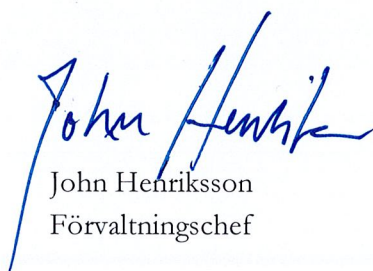 John Henrik
John Henriksson
Förvaltningschef